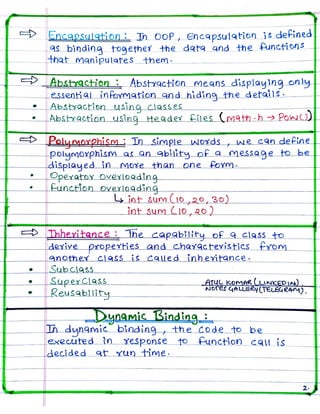 ⇒ Encapsulation : In OOP, Encapsulation is defined
as binding together the data and the functions
that manipulates them.
⇒ Abstraction : Abstraction means displaying only
essential information and hiding the details.
• Abstraction using classes
• Abstraction using Header files (math.h → Pow())
⇒ Polymorphism : In simple words, we can define
polymorphism as an ability of a message to be
displayed in more than one form.
• Operator Overloading
• Function Overloading
↳ int sum (10, 20, 30)
int sum (10, 20)
⇒ Inheritance : The capability of a class to
derive properties and characteristics from
another class is called inheritance.
• Subclass
• Superclass
• Reusability
ATUL KUMAR (LINKEDIN).
NOTES GALLERY (TELEGRAM).
Dynamic Binding :
In dynamic binding, the code to be
executed in response to function call is
decided at run time.
2.